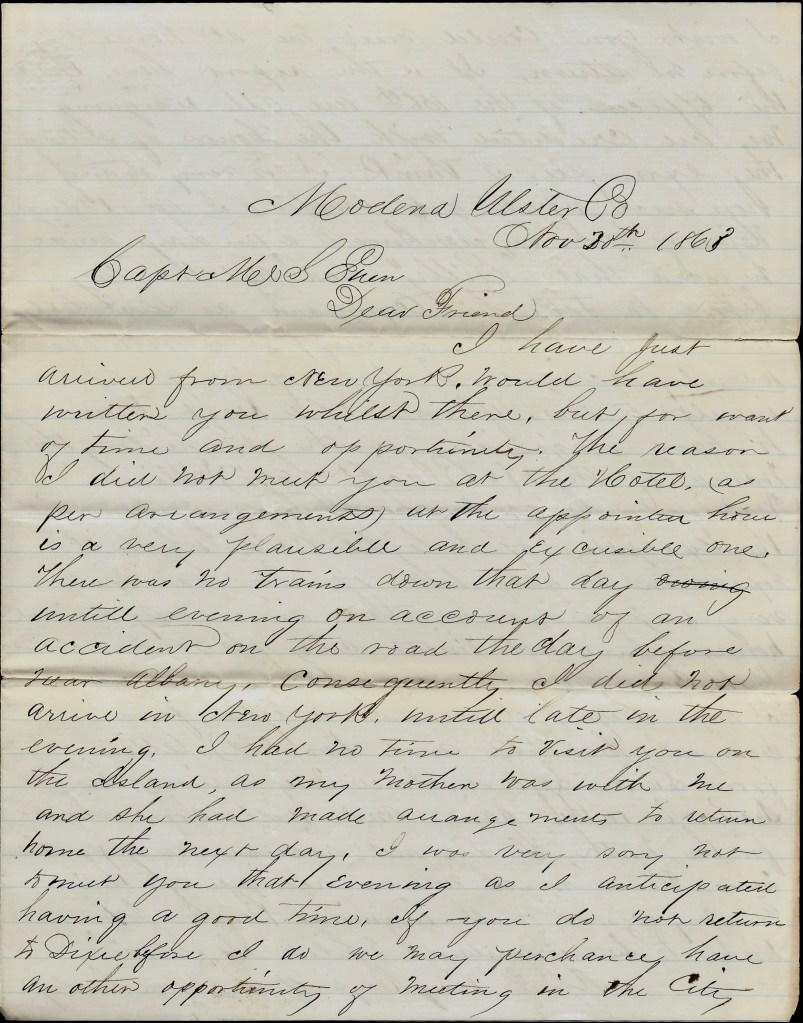 Modena Ulster Co
Nov 30th 1863
Capt M S Euen
Dear Friend
I have just
arrived from New York. Would have
written you whilst there, but, for want
of time and opportunity. The reason
I did not meet you at the Hotel, (as
per arrangements) at the appointed hour
is a very plausible and Excusible one.
There was no trains down that day owing
untill evening on account of an
accident on the road the day before
near Albany, Consequently I did not
arrive in New York, untill late in the
evening. I had no time to Visit you on
the Island, as my Mother was with me
and she had made arrangements to return
home the next day. I was very sory not
to meet you that Evening as I anticipated
having a good time. If you do not return
to Dixie before I do we may perchance, have
an other opportunity of Meeting in the City